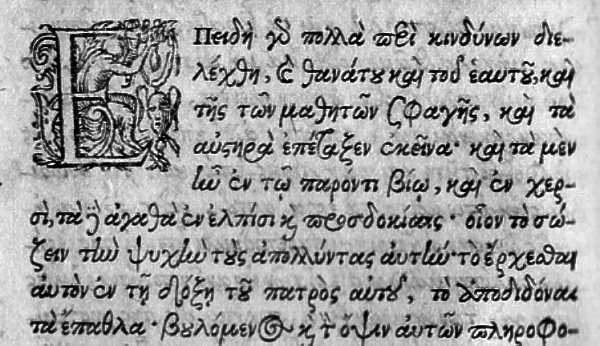 ΕΠειδὴ γὰρ πολλὰ περὶ κινδύνων διε-
λέχθη, καὶ θανάτου καὶ τοῦ ἑαυτοῦ, καὶ
τῆς τῶν μαθητῶν σφαγῆς, καὶ τὰ
αὐστηρὰ ἐπέταξεν ἐκεῖνα· καὶ τὰ μὲν
ἦν ἐν τῷ παρόντι βίῳ, καὶ ἐν χερ-
σὶ, τὰ δὲ ἀγαθὰ ἐν ἐλπίσι καὶ προσδοκίαις· οἷον τὸ σώ-
ζειν τὴν ψυχὴν τοὺς ἀπολλύντας αὐτήν· τὸ ἔρχεσθαι
αὐτὸν ἐν τῇ δόξῃ τοῦ πατρὸς αὐτοῦ, τὸ ἀποδιδόναι
τὰ ἔπαθλα· βουλόμενος καὶ τὴν ὄψιν αὐτῶν πληροφο-